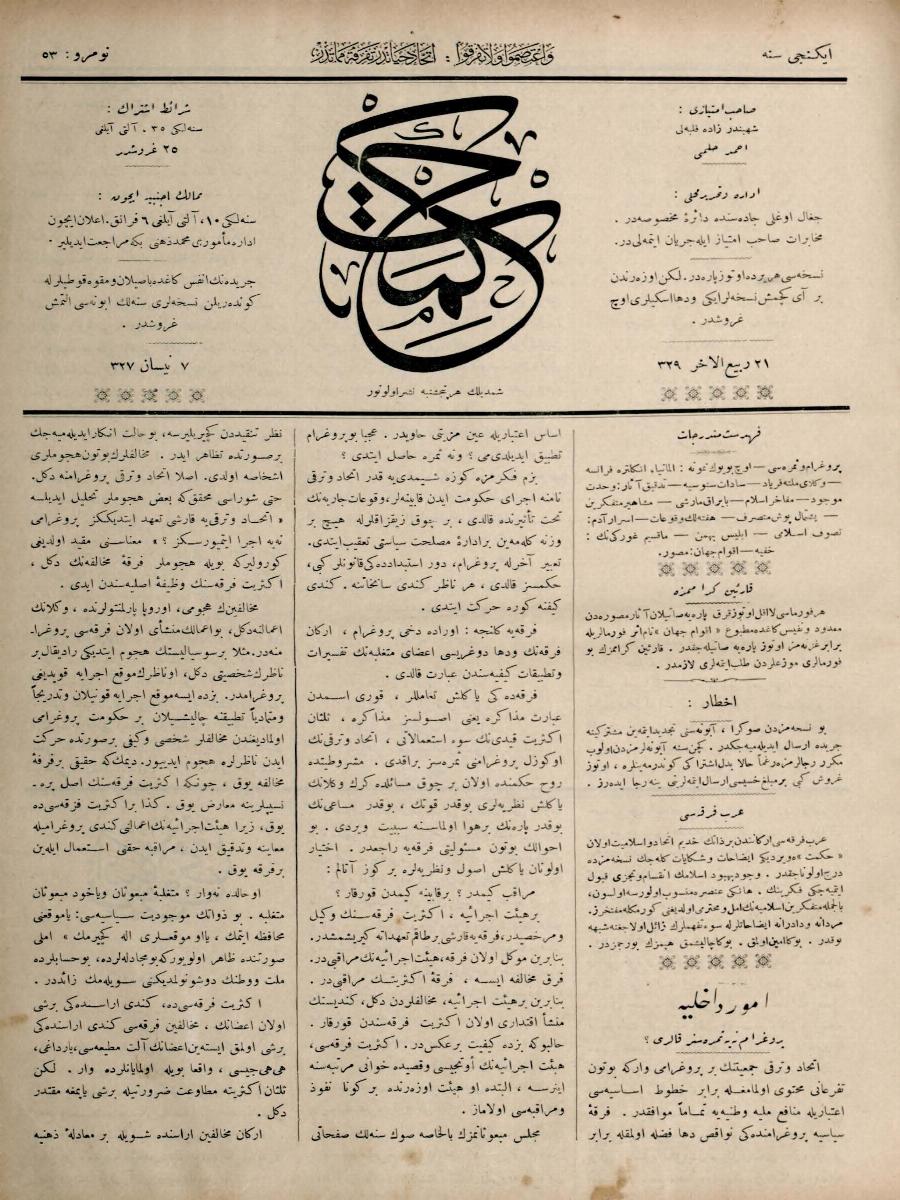 ایكنجی سنه
واعتصموا ولا تفرقوا : اتحاد حیاتدر تفرقه مماتدر
نومرو : ٥٣
صاحب امتیازی :
شهبندر زاده فلبه‌لی
احمد حلمی
اداره و تحریر محلی :
جغال اوغلی جاده‌سنده دائرهٔ مخصوصه‌در .
مخابرات صاحب امتیاز ایله جریان ایتمه‌لی‌در.
نسخه‌سی هر یرده اوتوز پاره‌در . لكن اوزه‌رندن
بر آی كچمش نسخه‌لر ایكی ودها اسكیلری اوچ
غروشدر .
٢١ ربیع الاخر ٣٢٩
حكمت
شمدیلك هر پنجشنبه نشر اولونور
شرائط اشتراك :
سنه‌لكی ٣٥ . آلتی آیلغی
٢٥ غروشدر
ممالك اجنبیه ایچون :
سنه‌لكی ١٠، آلتی آیلغی ٦ فرانق. اعلان ایچون
اداره مأموری محمد ذهنی بكه مراجعت ایدیلیر .
جریده‌نك انفس كاغده باصیلان و مقوه قوطیلر له
كوندریلن نسخه‌لری سنه‌لك ابونه‌سی التمش
غروشدر .
٧ نیسان ٣٢٧
فهرست مندرجات
پروغرام و ثمره‌سی — اوچ بویوك نمونه : المانیا، انكلتره فرانسه
— وكلای ملته فریاد — سادات سنوسیه — تدقیق آثار: وحدت
موجود — مفاخر اسلام — بایراق مارشی — مشاهیر متفكرین
— پشتمال پوش متصرف — هفته‌لك وقوعات — اسرار آدم :
تصوف اسلامی — ابلیس بهمن — ماقسیم غوركی‌نك :
خفیه — اقوام جهان : مصور .
قارئین كرامزه
هر فورماسی لااقل اوتوز قرق پاره‌یه صاتیلان آثار مصوره‌دن
معدود و نفیس كاغده مطبوع « اقوام جهان » نام اثر فورمالریله
برابر غزته‌مز اوتوز پاره‌یه صاتیله‌جقدر . قارئین كرامزك بو
فورمالری موزعلردن طلب ایتمه‌لری لازمدر .
اخطار :
بو نسخه‌مزدن صوكرا ، آبونه‌سنی تجدید ایتمه‌ین مشتركینه
جریده ارسال ایدیله‌میه‌جكدر . كچن سنه آبونه‌لرمزدن اولوب
مكرر رجالرمزه رغماً حالا بدل اشتراكی كوندرمه‌ینلره ، اوتوز
غروش كبی بر مبلغ خسیسی ارسال ایتمه‌لرینی ینه رجا ایده‌رز .
عرب فرقه‌سی
عرب فرقه‌سی اركانندن بر ذاتك خدیم اتحاد و اسلامیت اولان
« حكمت » ه ویردیكی ایضاحات و شكایات كله‌جك نسخه‌مزده
درج اولوناجقدر . وجود یهود اسلامك انقسام و تجزی قبول
ایتمیه‌جكی فكرینك . هانكی عنصره منسوب اولورسه اولسون،
بالجمله متفكرین اسلامیه‌نك امل و محترمی اولدیغنی كورمكله مفتخرز .
مردانه و دادرانه ایضاحاتلرله سوء تفهملرك زائل اولاجغنه شبهه
یوقدر . بوكا امین اولق . بوكا چالیشمق هپمزك بورجزدر .
امور داخلیه
پروغرام نیه ثمره‌سز قالدی ؟
اتحاد و ترقی جمعیتنك بر پروغرامی وار كه بوتون
تفرعاتی محتوی اولمامغله برابر خطوط اساسیه‌سی
اعتباریله منافع ملیه و وطنیه‌یه تماماً موافقدر . فرقهٔ
سیاسیه پروغرامنده‌كی نواقص دها فضله اولمقله برابر
اساس اعتباریله عین مزیتی حاویدر . عجبا بو پروغرام
تطبیق ایدیلدی‌می ؟ و نه ثمره حاصل ایتدی ؟
بزم فكرمزه كوره شیمدی‌یه قدر اتحاد و ترقی
نامنه اجرای حكومت ایدن قابینه‌لر ، وقوعات جاریه‌نك
تحت تأثیرنده قالدی ، بر چوق زیقزاقلرله هیچ بر
وزنه كله‌مه‌ین بر ادارهٔ مصلحت سیاستی تعقیب ایتدی.
تعبیر آخرله پروغرام، دور استبدادده‌كی قانونلر كبی،
حكمسز قالدی ، هر ناظر كندی سانحاتنه . كندی
كیفنه كوره حركت ایتدی .
فرقه‌یه كلنجه : اوراده دخی پروغرام ، اركان
فرقه‌نك ودها دوغریسی اعضای متغلبه‌نك تفسیرات
و تطبیقات كیفیه‌سندن عبارت قالدی .
فرقه‌ده كی یاكلش تعامللر ، قوری اسمدن
عبارت مذاكره یعنی اصولسز مذاكره ، ثلثان
اكثریت قیدینك سوء استعمالاتی ، اتحاد و ترقی‌نك
او كوزل پروغرامنی ثمره‌سز براقدی . مشروطیتده
روح حكمنده اولان بر چوق مسائلده كرك وكلانك
یاكلش نظریه‌لری بوقدر قوتك ، بوقدر مساعی‌نك
بوقدر پاره‌نك برهوا اولماسنه سببیت ویردی . بو
احوالك بوتون مسئولیتی فرقه‌یه راجعدر . اختیار
اولونان یاكلش اصول و نظریه‌لره بر كوز آتالم :
مراقب كیمدر ؟ بر قابینه كیمدن قورقار ؟
بر هیئت اجرائیه ، اكثریت فرقه‌سنك وكیل
و مرخصیدر، فرقه‌یه قارشی برطاقم تعهداته كیریشمشدر.
بنابرین موكل اولان فرقه، هیئت اجرائیه‌نك مراقبی‌در.
فرق مخالفه ایسه ، فرقهٔ اكثریتك مراقبی‌در .
بنابرین بر هیئت اجرائیه، مخالفلردن دكل، كندیسنك
منشأ اقتداری اولان اكثریت فرقه‌سندن قورقار .
حالبوكه بزده كیفیت برعكس‌در. اكثریت فرقه‌سی،
هیئت اجرائیه‌نك آوتجیسی و قصیده خوانی مرتبه‌سنه
اینرسه ، البتده او هیئت اوزه‌رنده بر كونا نفوذ
و مراقبه‌سی اولاماز .
مجلس مبعوثانمزك بالخاصه صوك سنه‌لك صفحاتی
نظر تنقیددن كچیریلیرسه، بو حالت انكار ایدیله‌میه‌جك
بر صورتده تظاهر ایدر . مخالفلرك بوتون هجوملری
اشخاصه اولدی. اصلا اتحاد و ترقی پروغرامنه دكل.
حتی شوراسی محقق كه بعض هجوملر تحلیل ایدیلسه
« اتحاد و ترقی‌یه قارشی تعهد ایتدیككز پروغرامی
نه‌یه اجرا ایتمیورسكز ؟ » معناسنی مقید اولدیغی
كورولیركه بویله هجوملر فرقهٔ مخالفه‌نك دكل ،
اكثریت فرقه‌سنك وظیفهٔ اصلیه‌سندن ایدی .
مخالفینك هجومی، اوروپا پارلمنتولرنده ، وكلانك
اعمالنه دكل، بو اعمالك منشأی اولان فرقه‌سی پروغرا-
منه‌در. مثلا بر سوسیالیستك هجوم ایتدیكی رادیقال بر
ناظرك شخصیتی دكل، او ناظرك موقع اجرایه قویدیغی
پروغرامدر. بزده ایسه موقع اجرایه قونیلان و تدریجاً
و متمادیاً تطبیقنه چالیشیلان بر حكومت پروغرامی
اولمادیغندن مخالفلر شخصی و كیفی بر صورتده حركت
ایدن ناظرلره هجوم ایدییور. دیمك كه حقیقی بر فرقهٔ
مخالفه یوق ، چونكه اكثریت فرقه‌سنك اصل پره‌-
نسیپلرینه معارض یوق . كذا بر اكثریت فرقه‌سی‌ده
یوق، زیرا هیئت اجرائیه‌نك اعمالنی كندی پروغرامیله
معاینه و تدقیق ایدن ، مراقبه حقنی استعمال ایله‌ین
بر فرقه یوق .
او حالده نه‌وار ؟ متغلبهٔ مبعوثان ویاخود مبعوثان
متغلبه . بو ذواتك موجودیت سیاسیه‌سی : یا موقعنی
محافظه ایتمك ، یا او موقعلری اله كچیرمك » املی
صورتنده ظاهر اولویور كه بو مجادله‌لرده، بو حسابلرده
ملت و وطنك دوشونولمدیكنی سویله‌مك زائددر .
اكثریت فرقه‌سی‌ده، كندی اراسنده‌كی برشی
اولان اعضانك ، مخالفین فرقه‌سی كندی اراسنده‌كی
برشی اولمق ایسته‌ین اعضانك آلت مطیعه‌سی، یارداغی،
هی‌هی‌جیسی ، واقعا بویله اولمایانلرده وار . لكن
ثلثان اكثریته مطاوعت ضرورتیله برشی یاپمغه مقتدر
دكل .
اركان مخالفین اراسنده شویله بر معادلهٔ ذهنیه